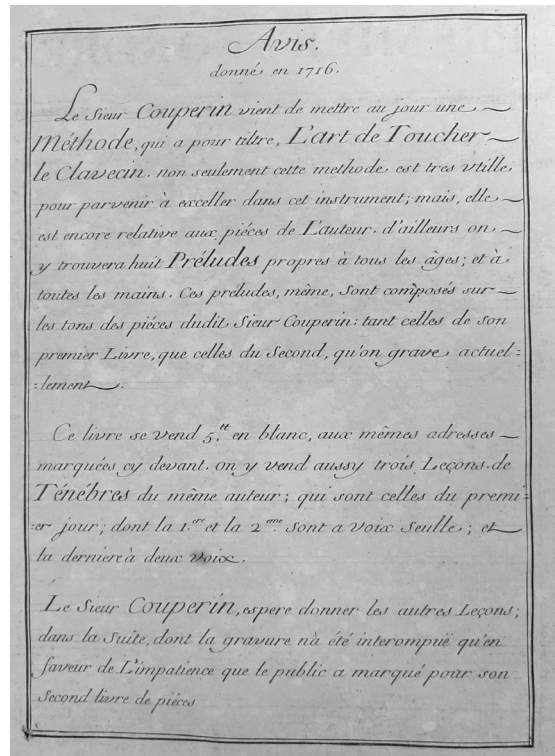 Avis.
donné en 1716.
Le Sieur Couperin vient de mettre au jour une
Méthode, qui a pour tiltre, L'art de Toucher
le Clavecin. non seulement cette methode est tres vtille
pour parvenir à exceller dans cet instrument; mais, elle
est encore relative aux piéces de L'auteur. d'ailleurs on
y trouvera huit Préludes propres à tous les âges; et à
toutes les mains. Ces préludes, même, sont composés sur
les tons des piéces dudit Sieur Couperin: tant celles de son
premier Livre, que celles du Second, qu'on grave actuel=
=lement.
Ce livre se vend 5.tt en blanc, aux mêmes adresses
marquées cy devant. on y vend aussy trois Leçons de
Ténébres du même auteur; qui sont celles du premi=
=er jour; dont la 1.ere et la 2.eme sont a voix seulle; et
la derniere à deux voix.
Le Sieur Couperin, espere donner les autres Leçons;
dans la suite, dont la gravure n'a été interompuë qu'en
faveur de L'impatience que le public a marqué pour son
Second livre de piéces